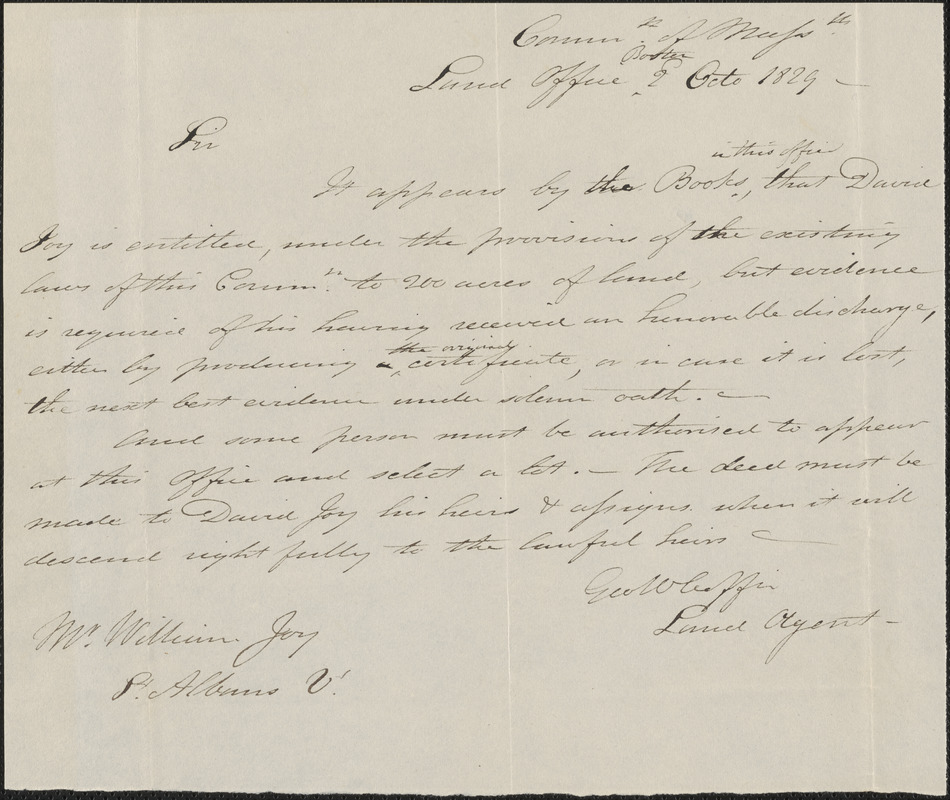 Commth. of Massth.
Boston
Land Office, 2 Octo 1829 —
Sir
in this office
It appears by the Books, that David
Joy is entitled, under the provisions of the existing
laws of this Commth. to 200 acres of land, but evidence
is required of his having received an honorable discharge,
the original
either by producing a certificate, or in case it is lost,
the next best evidence under solemn oath. —
And some person must be authorised to appear
at this Office and select a lot. — The deed must be
made to David Joy his heirs & assigns when it will
descend right fully to the lawful heirs —
Geo W Coffin
Land Agent —
Mr. William Joy
St. Albans Vt.